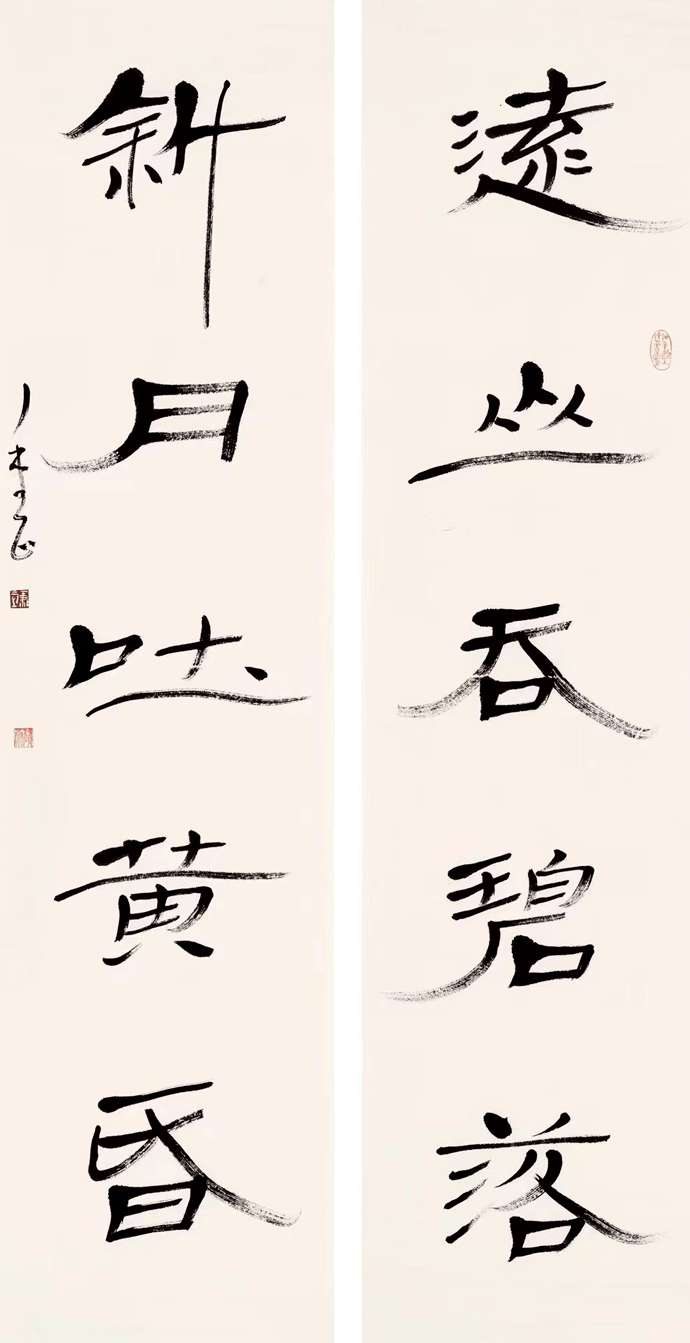 遠山吞碧落
斜月吐黄昏